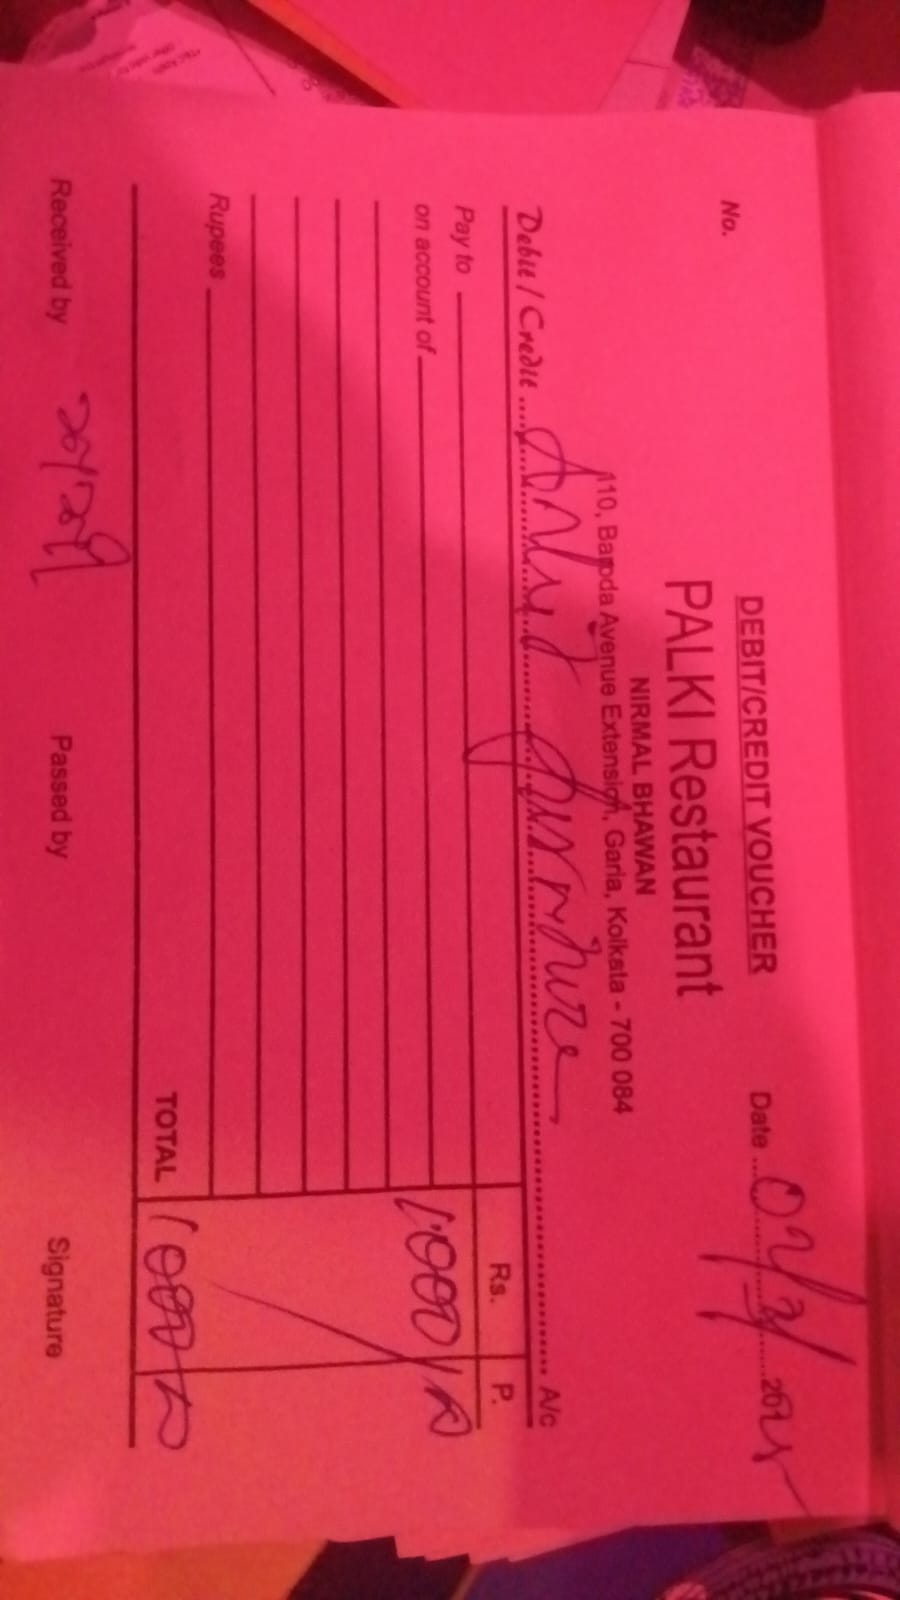 DEBIT/CREDIT VOUCHER
No.
PALKI Restaurant
Date
NIRMAL BHAWAN
110, Baroda Avenue Extension, Garia, Kolkata - 700 084
Debit / Credit Furniture A/c
Rs. P.
Pay to
on account of 1000/-
Rupees
TOTAL 1000
Received by Passed by Signature